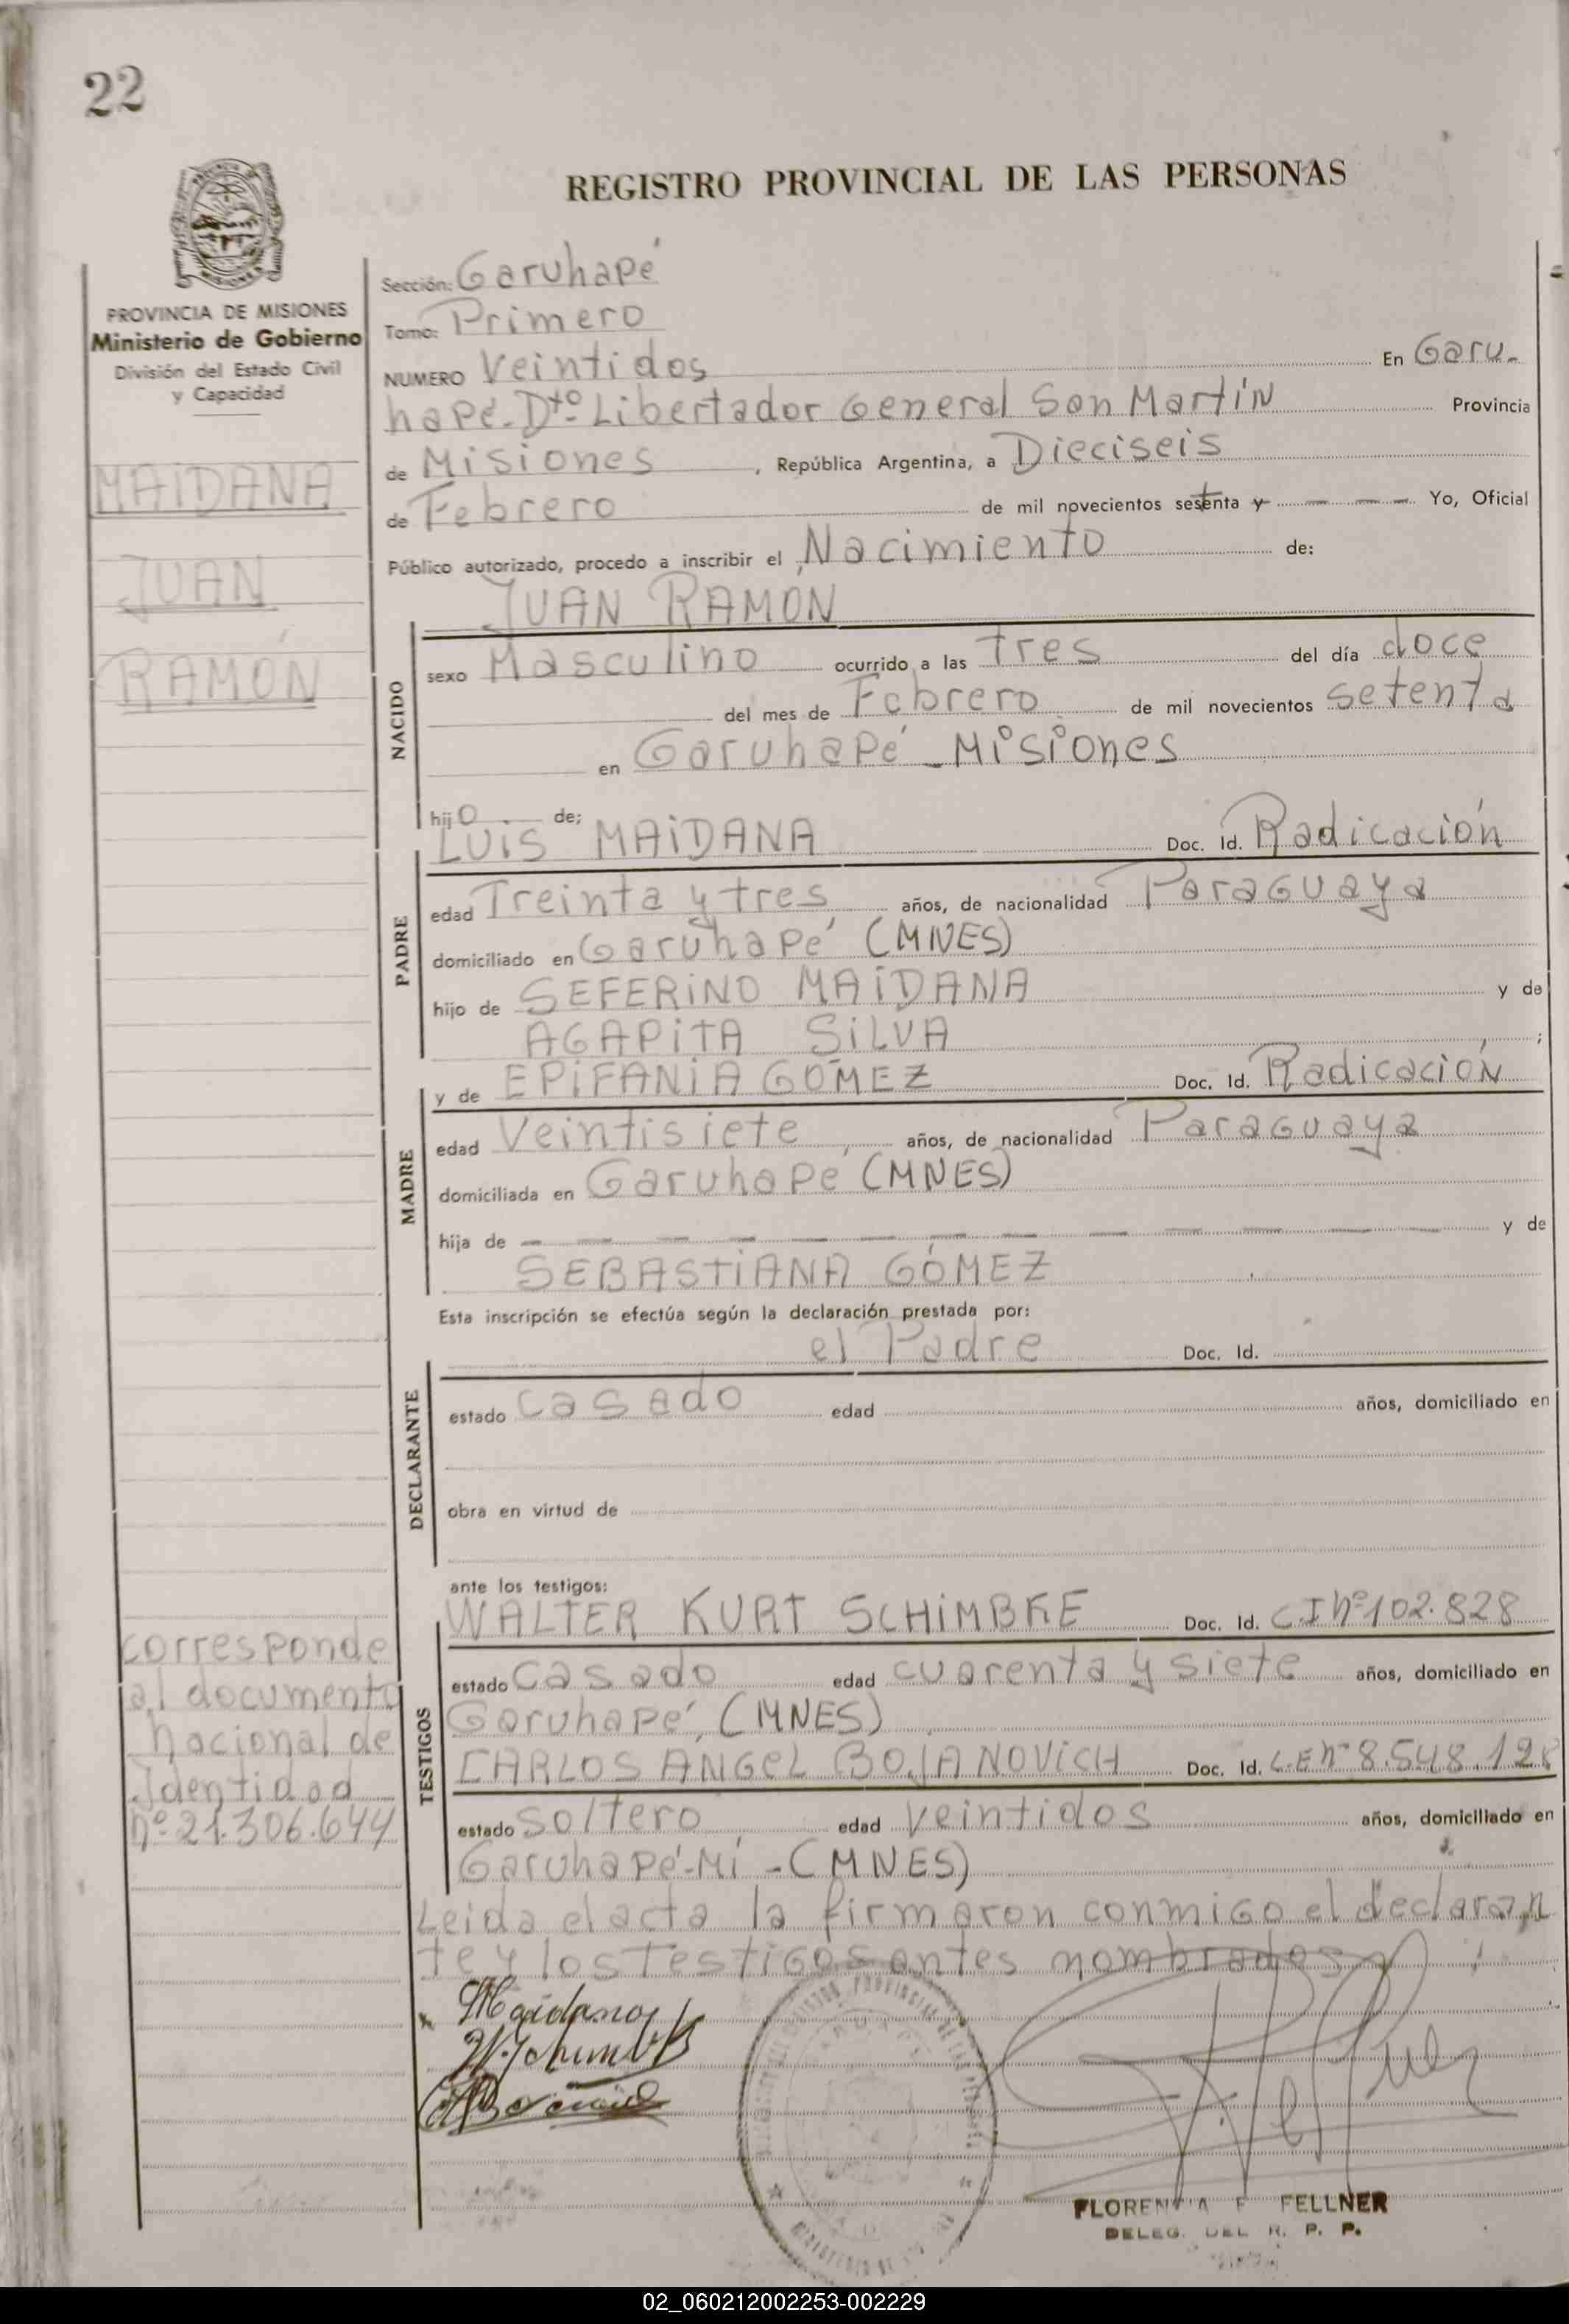 22
REGISTRO PROVINCIAL DE LAS PERSONAS
PROVINCIA DE MISIONES
Ministerio de Gobierno
División del Estado Civil
y Capacidad
MAIDANA
JUAN
RAMÓN
Sección: Garuhapé
Tomo: Primero
NUMERO Veintidos En Garu-
hapé-Dto. Libertador General San Martín Provincia
de Misiones, República Argentina, a Dieciseis
de Febrero de mil novecientos setenta y — — — Yo, Oficial
Público autorizado, procedo a inscribir el Nacimiento de:
JUAN RAMON
NACIDO
sexo Masculino ocurrido a las Tres del día doce
del mes de Febrero de mil novecientos setenta
en Garuhapé - Misiones
hijo de:
LUIS MAIDANA Doc. Id. Radicación
PADRE
edad Treinta y tres años, de nacionalidad Paraguaya
domiciliado en Garuhapé (MNES)
hijo de SEFERINO MAIDANA y de
AGAPITA SILVA ;
y de EPIFANIA GOMEZ Doc. Id. Radicación
MADRE
edad Veintisiete años, de nacionalidad Paraguaya
domiciliada en Garuhapé (MNES)
hija de — — — — — — — — — — — — — y de
SEBASTIANA GÓMEZ
Esta inscripción se efectúa según la declaración prestada por:
el Padre Doc. Id.
DECLARANTE
estado casado edad años, domiciliado en
obra en virtud de
ante los testigos:
WALTER KURT SCHIMBKE Doc. Id. C.I Nº 102.828
TESTIGOS
estado Casado edad cuarenta y siete años, domiciliado en
Garuhapé, (MNES)
CARLOS ANGEL BOJANOVICH Doc. Id. L.E Nº 8.548.128
estado soltero edad Veintidos años, domiciliado en
Garuhapé-Mí - (MNES)
Leida el acta la firmaron conmigo el declaran
te y los testigos antes nombrados
corresponde
al documento
Nacional de
Identidad
Nº 21.306.644
Maidana
FLORENTIA F FELLNER
DELEG. DEL R. P. P.
02_060212002253-002229